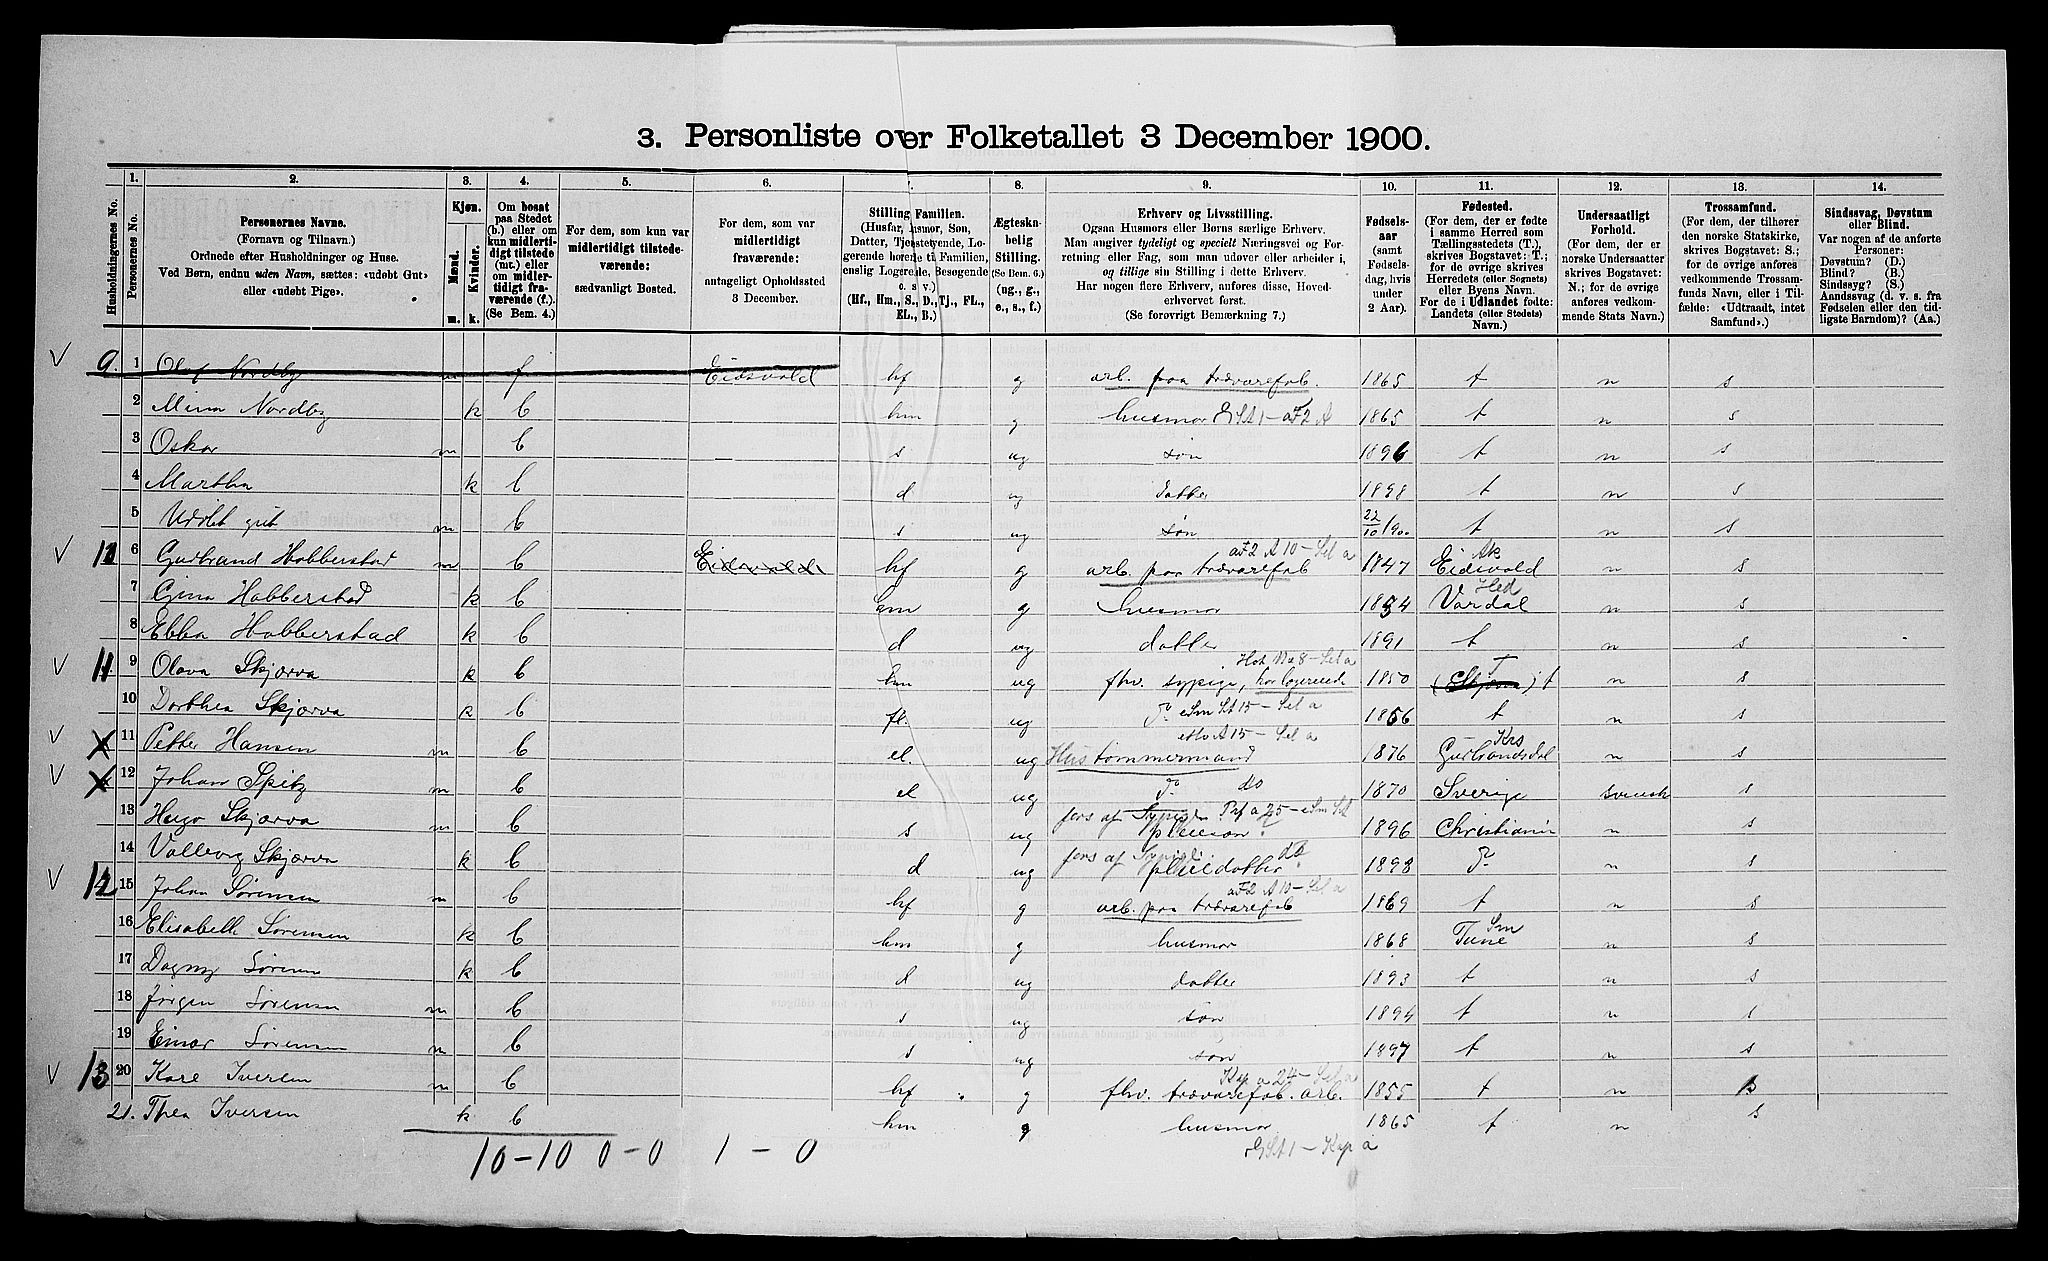 3. Personliste over Folketallet 3 December 1900.
Husholdningernes No.
1.
Personernes No.
2.
Personernes Navne.
(Fornavn og Tilnavn.)
Ordnede efter Husholdninger og Huse.
Ved Børn, endnu uden Navn, sættes: «udøbt Gut»
eller «udøbt Pige».
3.
Kjøn.
Mænd.
Kvinder.
m. k.
4.
Om bosat
paa Stedet
(b.) eller om
kun midlerti-
digt tilstede
(mt.) eller
om midler-
tidigt fra-
værende (f.).
(Se Bem. 4.)
5.
For dem, som kun var
midlertidigt tilstede-
værende:
sædvanligt Bosted.
6.
For dem, som var
midlertidigt
fraværende:
antageligt Opholdssted
3 December.
7.
Stilling i Familien.
(Husfar, Husmor, Søn,
Datter, Tjenestetyende, Lo-
gerende hørende til Familien,
enslig Logerende, Besøgende
o. s. v.)
(Hf., Hm., S., D., Tj., FL.,
EL., B.)
8.
Ægteska-
belig
Stilling.
(Se Bem. 6.)
(ug., g.,
e., s., f.)
9.
Erhverv og Livsstilling.
Ogsaa Husmors eller Børns særlige Erhverv.
Man angiver tydeligt og specielt Næringsvei og For-
retning eller Fag, som man udøver eller arbeider i,
og tillige sin Stilling i dette Erhverv.
Har nogen flere Erhverv, anføres disse, Hoved-
erhvervet først.
(Se forøvrigt Bemærkning 7.)
10.
Fødsels-
aar
(samt
Fødsels-
dag, hvis
under
2 Aar).
11.
Fødested.
(For dem, der er fødte
i samme Herred som
Tællingsstedets (T.),
skrives Bogstavet: T.;
for de øvrige skrives
Herredets (eller Sognets)
eller Byens Navn.
For de i Udlandet fødte:
Landets (eller Stedets)
Navn.)
12.
Undersaatligt
Forhold.
(For dem, der er
norske Undersaatter
skrives Bogstavet:
N.; for de øvrige
anføres vedkom-
mende Stats Navn.)
13.
Trossamfund.
(For dem, der tilhører
den norske Statskirke,
skrives Bogstavet: S.;
for de øvrige anføres
vedkommende Trossam-
funds Navn, eller i Til-
fælde: «Udtraadt, intet
Samfund».)
14.
Sindssvag, Døvstum
eller Blind.
Var nogen af de anførte
Personer:
Døvstum? (D.)
Blind? (B.)
Sindssyg? (S.)
Aandssvag (d. v. s. fra
Fødselen eller den tid-
ligste Barndom)? (Aa.)
9. 1 Olaf Nordby m f Eidsvold hf g arb. paa trævarefab. 1865 t n s
2 Mina Nordby k b hm g husmor 1865 t n s
3 Oskar m b s ug søn 1896 t n s
4 Martha k b d ug datter 1898 t n s
5 Udøbt gut m b s ug søn 22/10 1900. t n s
6 Gudbrand Habberstad m b Eidsvold hf g arb. paa trævarefab 1847 Eidsvold Ak n s
7 Gina Habberstad k b hm g husmor 1854 Vardal Hed n s
8 Ebba Habberstad k b d ug datter 1891 t n s
11 9 Olava Skjærva k b hm ug fhv. sypige, har logerende 1850 t n s
10 Dorthea Skjærva k b fl. ug 1856 t n s
11 Petter Hansen m b el. ug Hus tømmermand 1876 Gudbrandsdal Krs n s
12 Johan Spitz m b el ug do 1870 Sverige svensk s
13 Hugo Skjærva m b s ug fors af pleiesøn 1896 Christiania n s
14 Valborg Skjærva k b d ug fors af pleiedatter do 1898 n s
12 15 Johan Sørensen m b hf g arb. paa trævarefab 1869 t n s
16 Elisabeth Sørensen k b hm g husmor 1868 Tune Sm n s
17 Dagny Sørensen k b d ug datter 1893 t n s
18 Jørgen Sørensen m b s ug søn 1894 t n s
19 Einar Sørensen m b s ug søn 1897 t n s
13 20 Kare Iversen m b hf g fhv. trævarefab. arb. 1855 t n s
21. Thea Iversen k b hm g husmor 1865 t n s
10-10 0-0 1-0